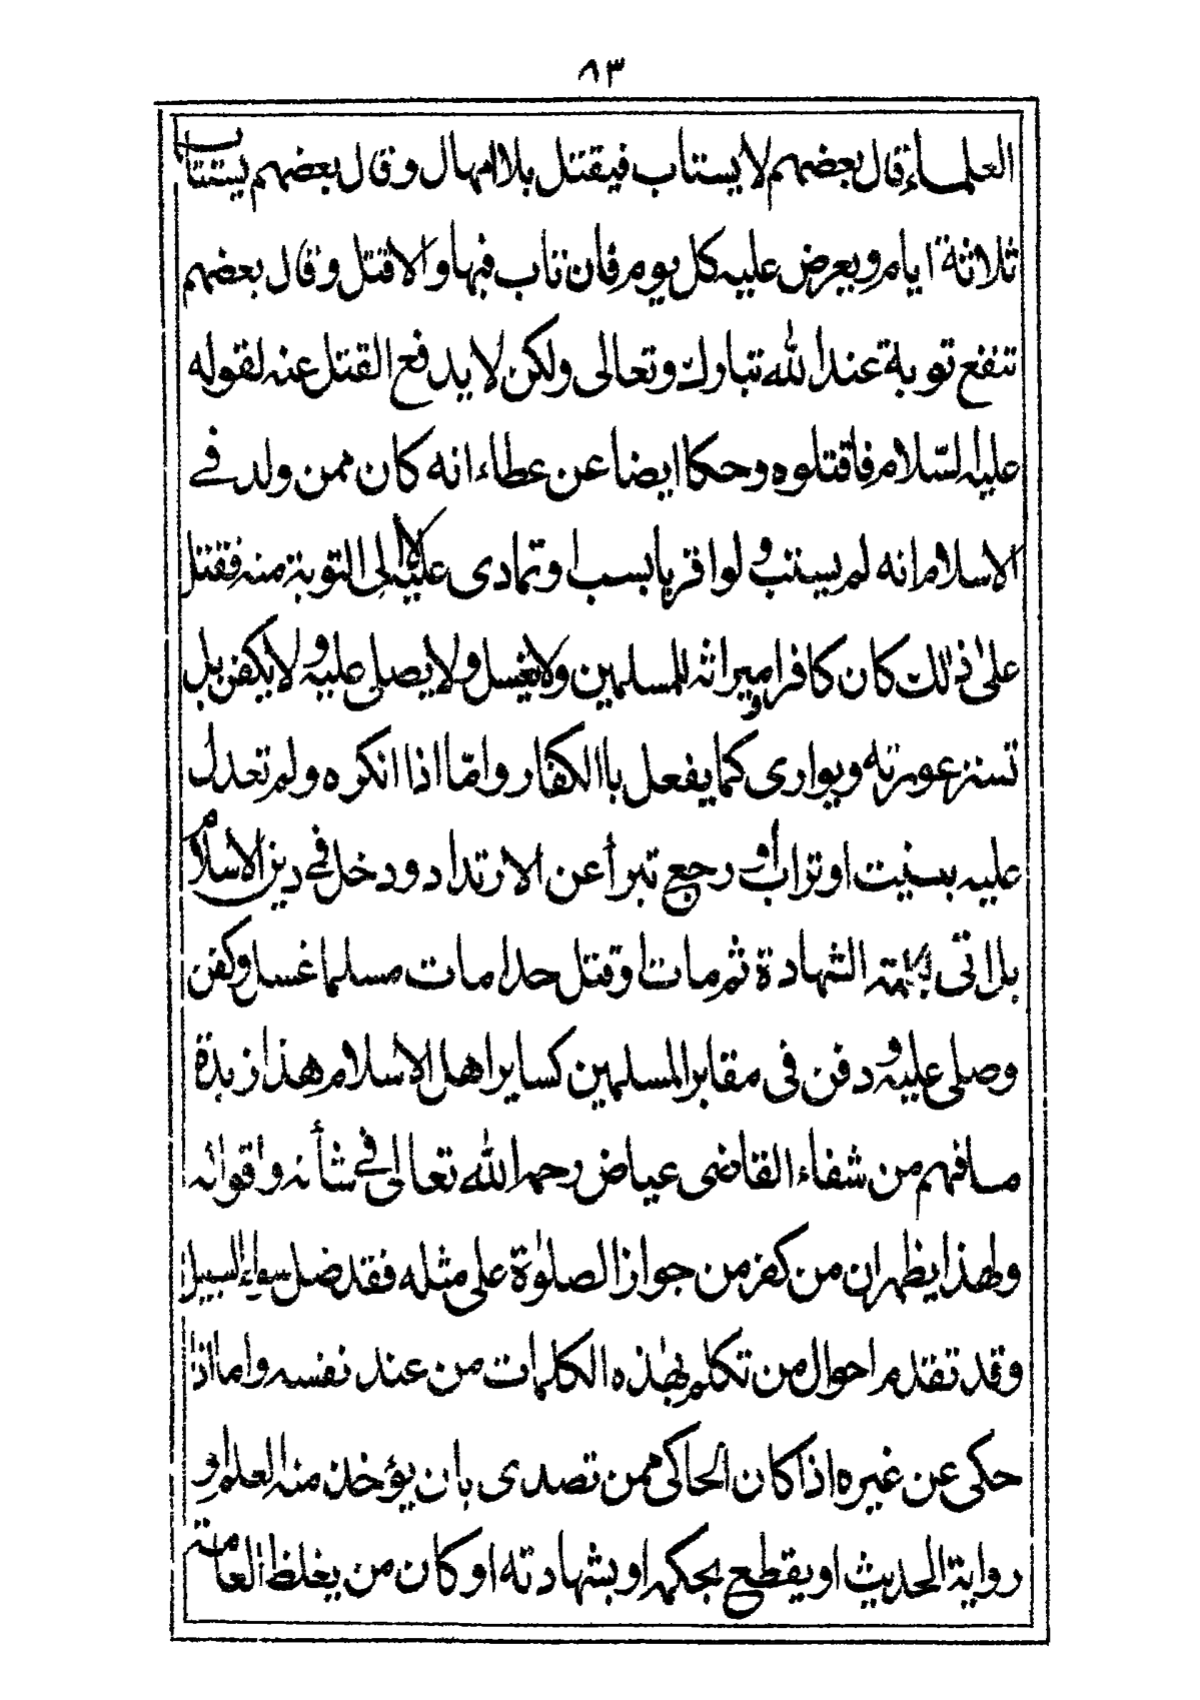 ٨٣
العلماء قال بعضهم لا يستاب فيقتل بلا امهال وقال بعضهم يستتاب
ثلاثة ايام ويعرض عليه كل يوم فان تاب فبها والا قتل وقال بعضهم
تنفع توبة عند الله تبارك وتعالى ولكن لا يدفع القتل عنه لقوله
عليه السّلام فاقتلوه وحكا ايضا عن عطاء انه كان ممن ولد في
الاسلام انه لم يستتب ولو اقر بالسب او تمادى عليه الى التوبة منه فقتل
على ذلك كان كافرا وميراثه للمسلمين ولا يغسل ولا يصلى عليه ولا يكفن بل
تستر عورته ويوارى كما يفعل باالكفار وامّا اذا انكره ولم تعدل
عليه بينت او تراب او رجع تبرأ عن الارتداد ودخل في دين الاسلام
بل اتى بكلمته الشهادة ثم مات او قتل حدا مات مسلما غسل وكفن
وصلى عليه ودفن فى مقابر المسلمين كساير اهل الاسلام هذا زبدة
ما فهم من شفاء القاضى عياض رحمه الله تعالى في شأنه واقواله
ولهذا يظهر ان من كفر من جواز الصلوة على مثله فقد ضل سواء السبيل
وقد تقدم احوال من تكلم بهذه الكلمات من عند نفسه واما اذا
حكى عن غيره اذا كان الحاكى ممن تصدى بان يؤخذ منه العلم او
رواية الحديث او يقطع بحكمه او بشهادته او كان من يغلظ العامته